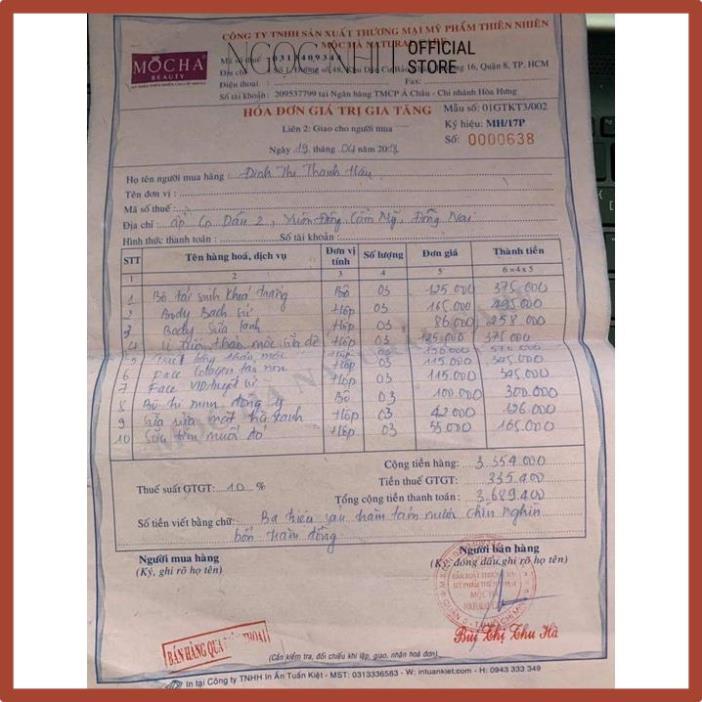 CÔNG TY TNHH SẢN XUẤT THƯƠNG MẠI MỸ PHẨM THIÊN NHIÊN
NGOC NHU OFFICIAL STORE
MOCHA
BEAUTY
Mã số thuế :
Địa chỉ : 16, Quận 8, TP. HCM
Điện thoại : Fax:
Số tài khoản : 209537799 tại Ngân hàng TMCP Á Châu - Chi nhánh Hòa Hưng
HÓA ĐƠN GIÁ TRỊ GIA TĂNG
Mẫu số: 01GTKT3/002
Liên 2: Giao cho người mua
Ký hiệu: MH/17P
Ngày 19 tháng 04 năm 2018
Số: 0000638
Họ tên người mua hàng : Đinh Thị Thanh Hậu
Tên đơn vị :
Mã số thuế :
Địa chỉ : ấp Cọ Dầu 2, Xuân Đông, Cẩm Mỹ, Đồng Nai
Hình thức thanh toán : Số tài khoản :
STT Tên hàng hoá, dịch vụ Đơn vị tính Số lượng Đơn giá Thành tiền
1 2 3 4 5 6=4x5
1 Bộ tái sinh Bộ 03 125.000 375.000
2 Body Bạch Hộp 03 165.000 495.000
3 Body Sữa Hộp 03 86.000 258.000
4 thảo mộc sữa dê Hộp 03 125.000 375.000
5 thảo mộc Hộp 03
6 Face Collagen Hộp 03 115.000 345.000
7 Face Hộp 03 115.000 345.000
8 Bộ Bộ 03 100.000 300.000
9 Sữa rửa mặt Hộp 03 42.000 126.000
10 Sữa tắm muối đỏ Hộp 03 55.000 165.000
Cộng tiền hàng: 3.354.000
Thuế suất GTGT: 10 % Tiền thuế GTGT: 335.400
Tổng cộng tiền thanh toán : 3.689.400
Số tiền viết bằng chữ: Ba triệu sáu trăm tám mươi chín nghìn
bốn trăm đồng
Người mua hàng Người bán hàng
(Ký, ghi rõ họ tên) (Ký, đóng dấu, ghi rõ họ tên)
BÁN HÀNG QUA
Bùi Thị Thu Hà
(Cần kiểm tra, đối chiếu khi lập, giao, nhận hoá đơn)
In tại Công ty TNHH In Ấn Tuấn Kiệt - MST: 0313336583 - W: intuankiet.com - H: 0943 333 349